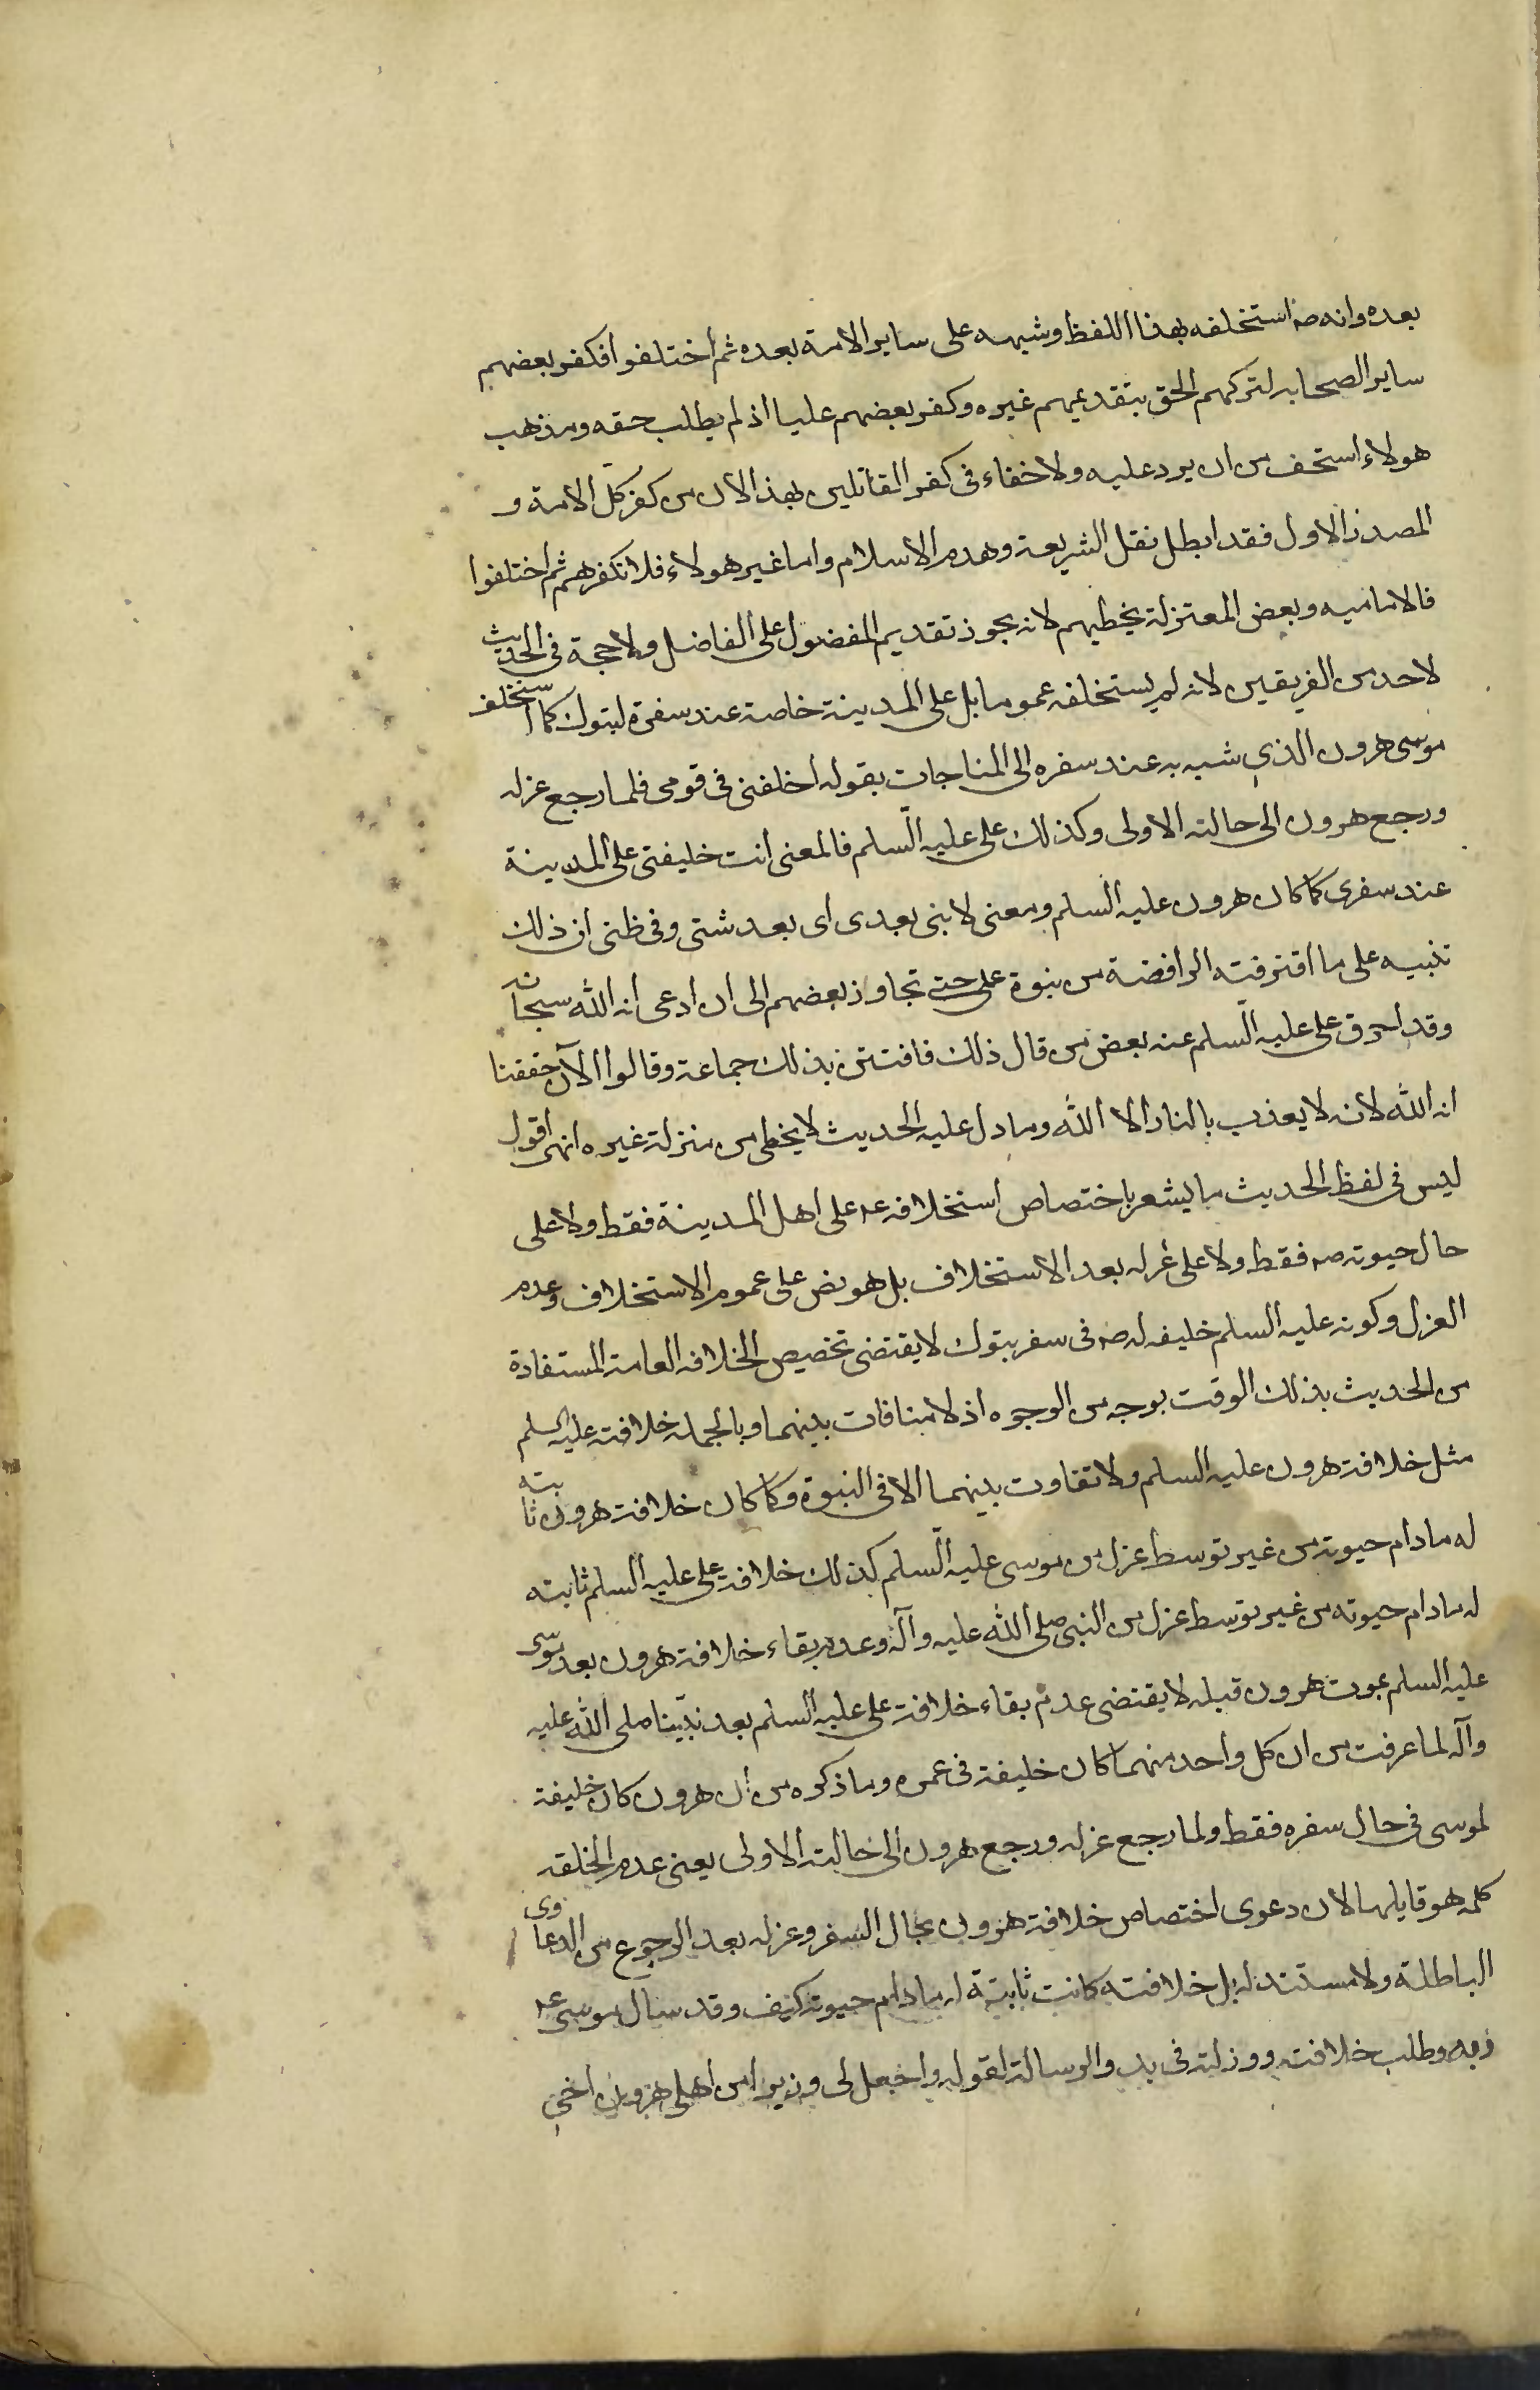 بعده وانه صه استخلفه بهذا اللفظ وشبهه على ساير الامة بعده ثم اختلفوا فكفر بعضهم
ساير الصحابه لتركهم الحق بتقديمهم غيره وكفر بعضهم عليا اذ لم يطلب حقه ومذهب
هولاء استخف من ان يرد عليه ولا خفاء فى كفر القائلين بهذا لان من كفر كل الامة و
المصدر الاول فقد ابطل نقل الشريعة وهدم الاسلام واما غير هولاء فلا نكفرهم ثم اختلفوا
فالاماميه وبعض المعتزلة يخطيهم لانه يجوز تقديم المفضول على الفاضل ولا حجة فى الحديث
لاحد من الفريقين لانه لم يستخلفه عموما بل على المدينة خاصة عند سفره لتبوك كما استخلف
موسى هرون الذى شبه به عند سفره الى المناجات بقوله اخلفنى فى قومى فلما رجع عزله
ورجع هرون الى حالته الاولى وكذلك على عليه السلم فالمعنى انت خليفتى على المدينة
عند سفرى كما كان هرون عليه السلم ومعنى لا نبى بعدى اى بعد شتى وفى ظنى ان ذلك
تنبيه على ما اقترفته الرافضة من نبوة على حتى تجاوز بعضهم الى ان ادعى انه الله سبحانه
وقد احرق على عليه السلم عنه بعض من قال ذلك فافتتن بذلك جماعة وقالوا الآن حققنا
انه الله لانه لا يعذب بالنار الا الله وما دل عليه الحديث لا يخطى من منزلة غيره انتهى اقول
ليس فى لفظ الحديث ما يشعر باختصاص استخلافه عه على اهل المدينة فقط ولا على
حال حيوته صه فقط ولا على عزله بعد الاستخلاف بل هو نص على عموم الاستخلاف وعدم
العزل وكونه عليه السلم خليفه له صه فى سفر تبوك لا يقتضى تخصيص الخلافه العامة المستفادة
من الحديث بذلك الوقت بوجه من الوجوه اذ لا منافات بينهما وبالجمله خلافته عليه السلم
مثل خلافة هرون عليه السلم ولا تفاوت بينهما الا فى النبوة وكما كان خلافة هرون ثابته
له مادام حيوته من غير توسط عزل من موسى عليه السلم كذلك خلافة على عليه السلم ثابته
له مادام حيوته من غير توسط عزل من النبى صلى الله عليه وآله وعدم بقاء خلافة هرون بعد موسى
عليه السلم بموت هرون قبله لا يقتضى عدم بقاء خلافة على عليه السلم بعد نبينا صلى الله عليه
وآله لما عرفت من ان كل واحد منهما كان خليفة فى عمره وما ذكره من ان هرون كان خليفة
لموسى فى حال سفره فقط ولما رجع عزله ورجع هرون الى حالته الاولى يعنى عدم الخلقه
كلمه هو قايلها لان دعوى اختصاص خلافة هرون بحال السفر وعزله بعد الرجوع من الدعاوى
الباطلة ولا مستند له بل خلافته كانت ثابتة له مادام حيوته كيف وقد سال موسى عه
ربه وطلب خلافته ووزارته فى بدو الرسالة لقوله واجعل لى وزيرا من اهلى هرون اخى